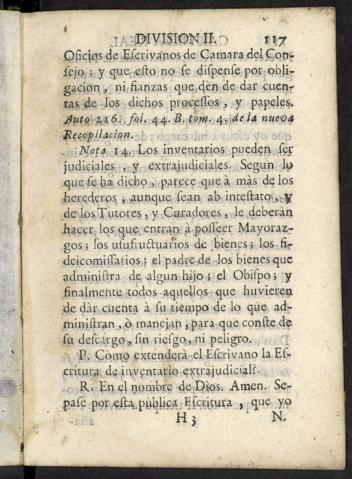 DIVISION II. 117
Oficios de Escrivanos de Camara del Con-
sejo; y que esto no se dispense por obli-
gacion, ni fianzas que den de dar cuen-
tas de los dichos processos, y papeles.
Auto 216. fol. 44. B. tom. 4. de la nueva
Recopilacion.
Nota 14. Los inventarios pueden ser
judiciales, y extrajudiciales. Segun lo
que se ha dicho, parece que à màs de los
herederos, aunque sean ab intestato, y
de los Tutores, y Curadores, le deberàn
hacer los que entran à posseer Mayoraz-
gos; los usufructuarios de bienes; los fi-
deicomissarios; el padre de los bienes que
administra de algun hijo; el Obispo; y
finalmente todos aquellos que huvieren
de dar cuenta à su tiempo de lo que ad-
ministran, ò manejan, para que conste de
su descargo, sin riesgo, ni peligro.
P. Como extenderà el Escrivano la Es-
critura de inventario extrajudicial?
R. En el nombre de Dios. Amen. Se-
pase por esta pública Escritura, que yo
H 3 N.